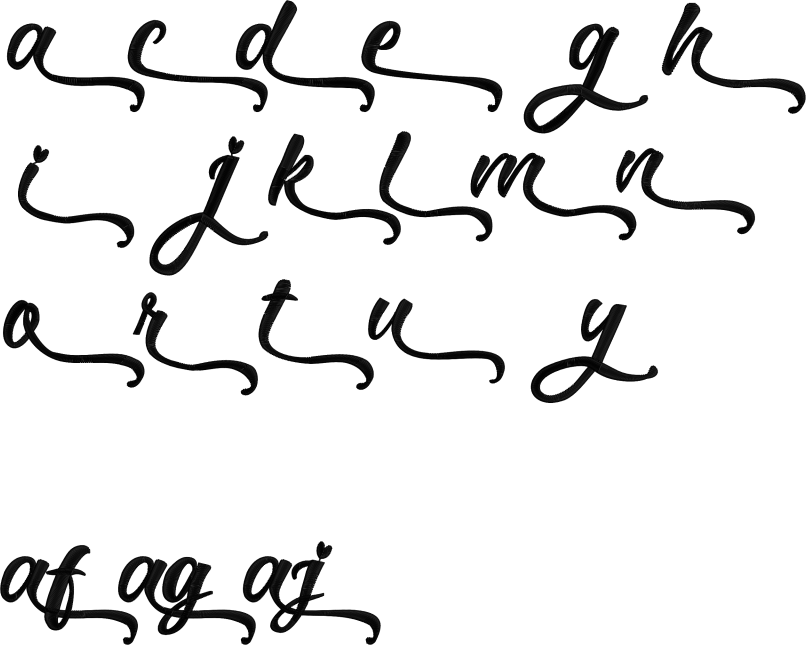 a c d e g h
i j k l m n
o r t u y
af ag aj